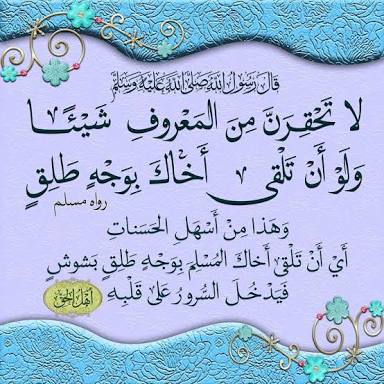 قَالَ رَسُولُ اللهِ صَلَّى اللهُ عَلَيْهِ وَسَلَّمَ
لا تَحْقِرَنَّ مِنَ المَعْرُوفِ شَيْئًا
وَلَوْ أَنْ تَلْقَى أَخَاكَ بِوَجْهٍ طَلِقٍ
رواه مسلم
وَهَذَا مِنْ أَسْهَلِ الحَسَنَاتِ
أَيْ أَنْ تَلْقَى أَخَاكَ المُسْلِمَ بِوَجْهٍ طَلِقٍ بَشُوشٍ
فَيَدْخُلَ السُّرُورُ عَلَى قَلْبِهِ
أهل الحق